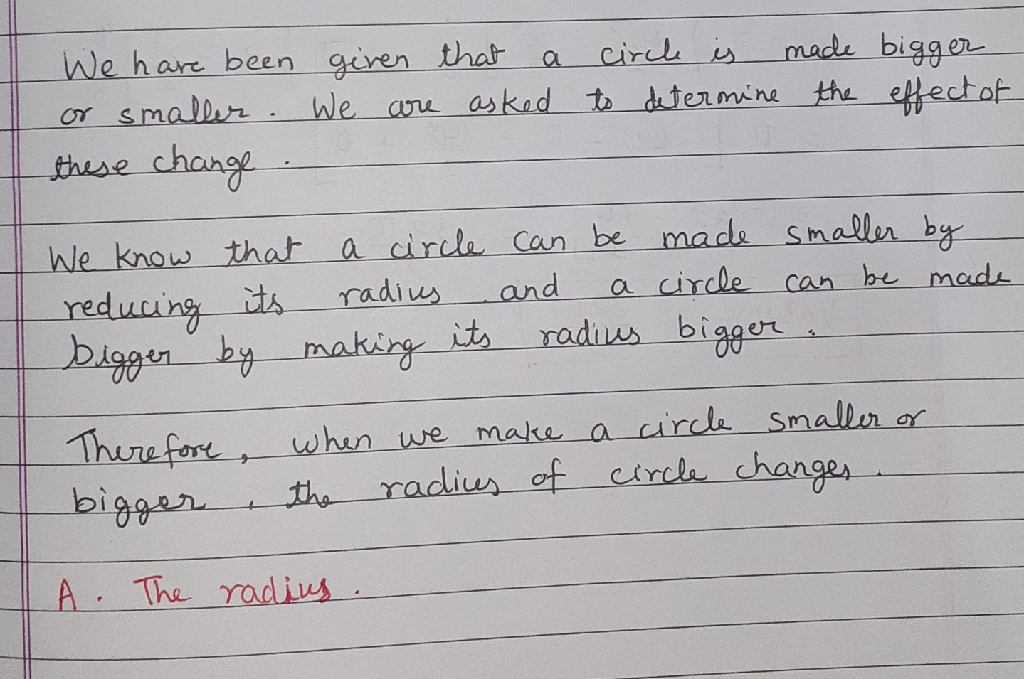 We have been given that a circle is made bigger
or smaller. We are asked to determine the effect of
these change.
We know that a circle can be made smaller by
reducing its radius and a circle can be made
bigger by making its radius bigger.
Therefore, when we make a circle smaller or
bigger, the radius of circle changes.
A. The radius.